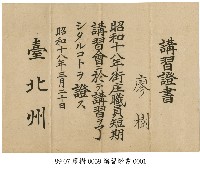 講習證書
廖樹
昭和十八年街庄職員短期
講習會ニ於テ講習ヲ了
シタルコトヲ證ス
昭和十八年三月二十日
臺北州